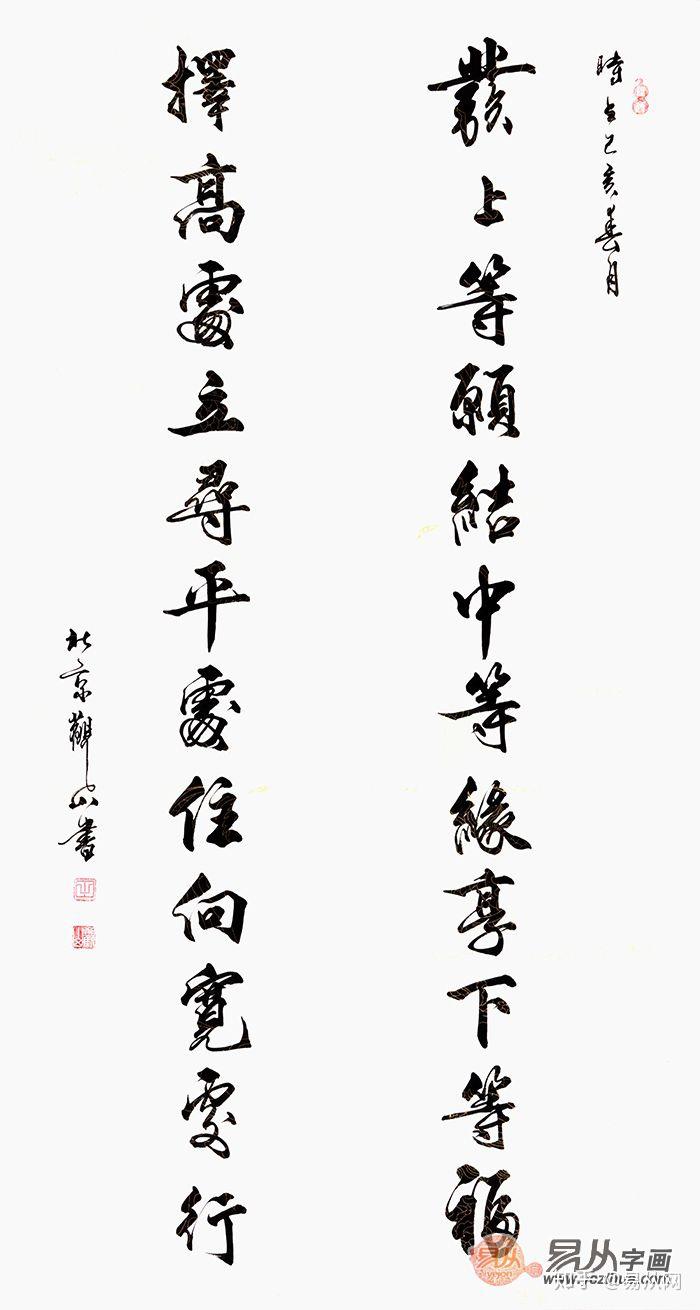 時在己亥春月
發上等願結中等緣享下等福
擇高處立尋平處住向寬處行
北京觀山書
易从字画
www.yczihua.com
知乎 @易从网